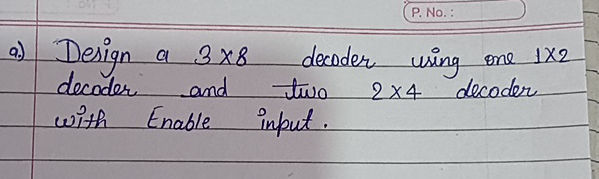 P. No. :
a) Design a 3x8 decoder using one 1x2
decoder and two 2x4 decoder
with Enable input.